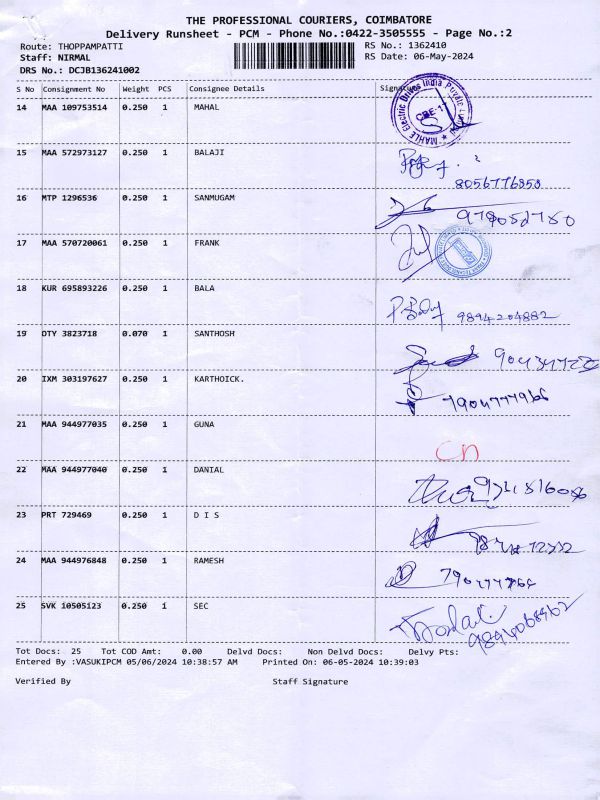 THE PROFESSIONAL COURIERS, COIMBATORE
Delivery Runsheet - PCM - Phone No.:0422-3505555 - Page No.:2
Route: THOPPAMPATTI RS No.: 1362410
Staff: NIRMAL RS Date: 06-May-2024
DRS No.: DCJB136241002
S No Consignment No Weight PCS Consignee Details Signature
14 MAA 109753514 0.250 1 MAHAL
MAHLE Electric Drives India Private
15 MAA 572973127 0.250 1 BALAJI
8056776858
16 MTP 1296536 0.250 1 SANMUGAM
17 MAA 570720061 0.250 1 FRANK
18 KUR 695893226 0.250 1 BALA
9894204882
19 DTY 3823718 0.070 1 SANTHOSH
20 IXM 303197627 0.250 1 KARTHOICK.
7904777966
21 MAA 944977035 0.250 1 GUNA
CN
22 MAA 944977040 0.250 1 DANIAL
23 PRT 729469 0.250 1 D I S
24 MAA 944976848 0.250 1 RAMESH
25 SVK 10505123 0.250 1 SEC
Tot Docs: 25 Tot COD Amt: 0.00 Delvd Docs: Non Delvd Docs: Delvy Pts:
Entered By :VASUKIPCM 05/06/2024 10:38:57 AM Printed On: 06-05-2024 10:39:03
Verified By Staff Signature